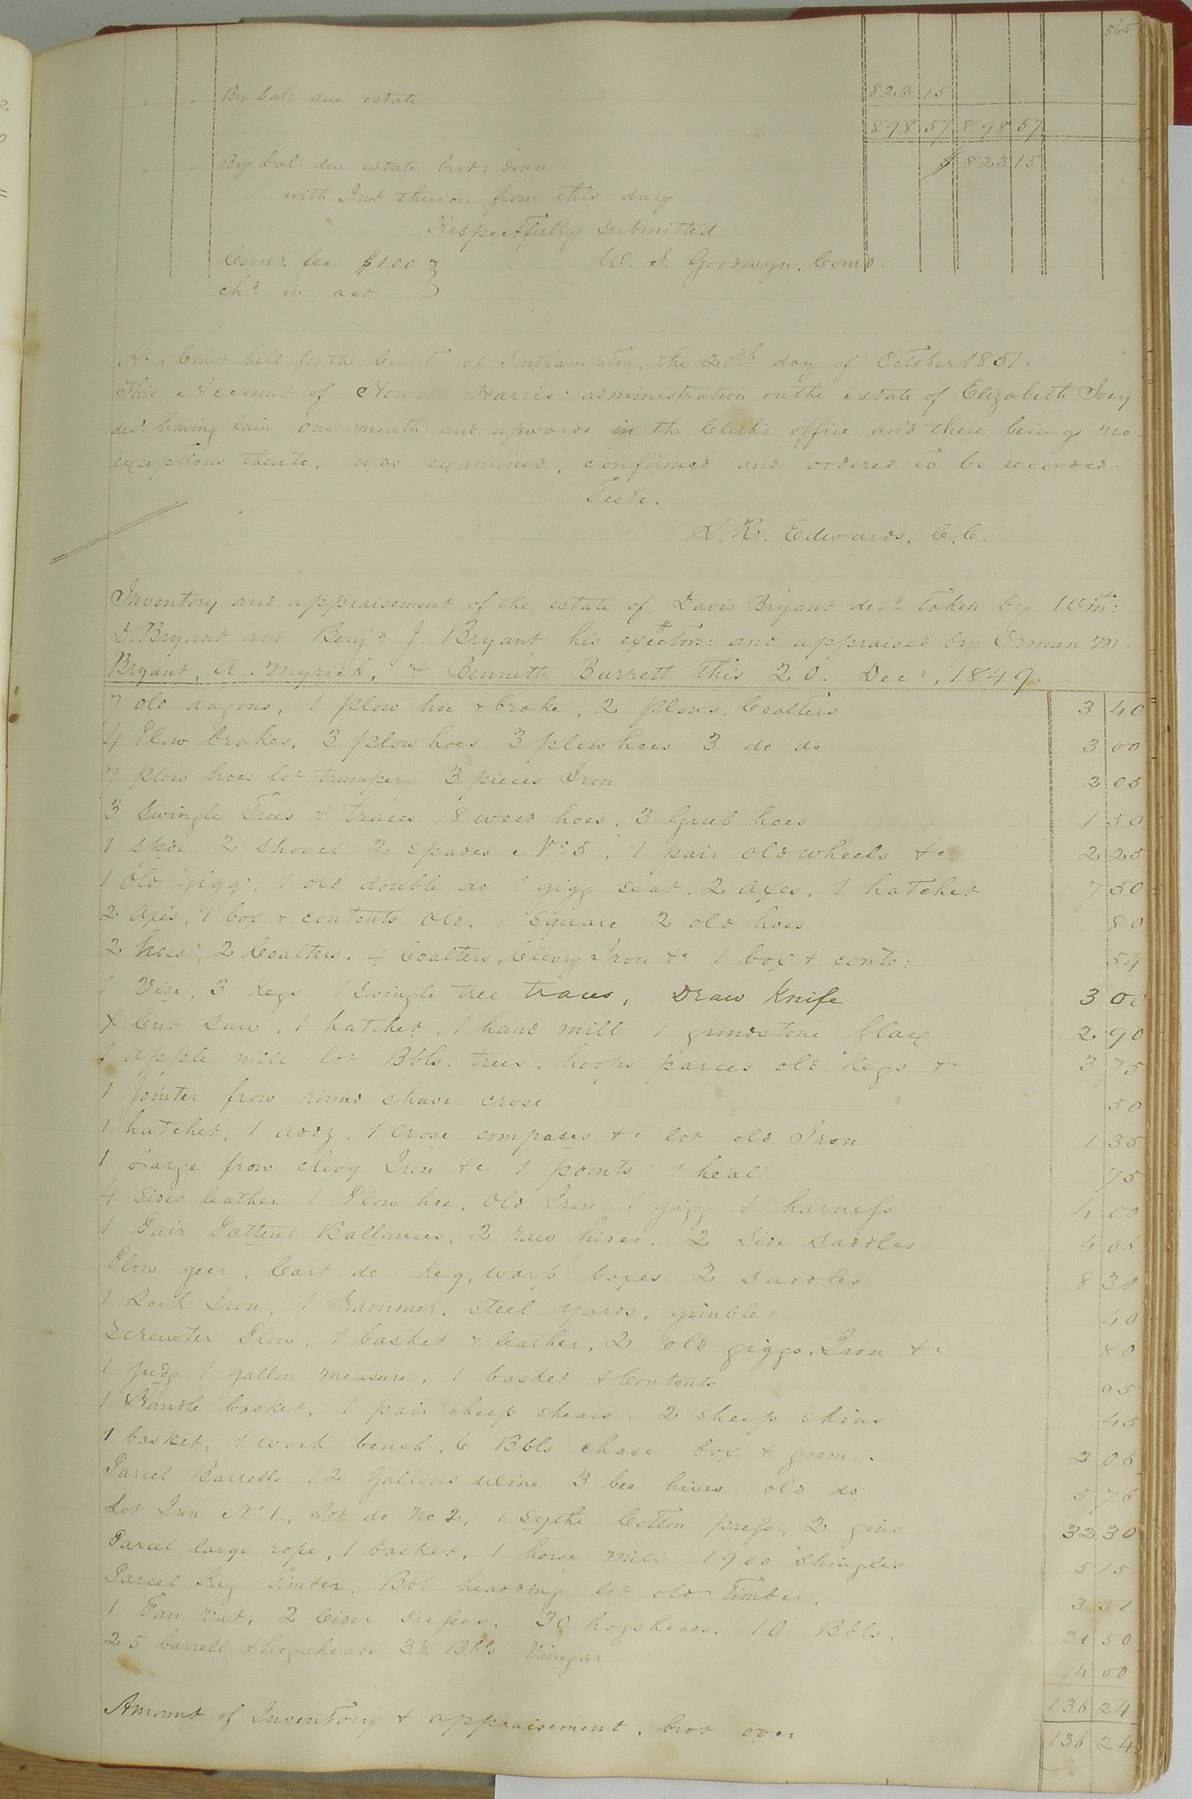 565
" " By bal. due estate 823 15
898 57 898 57
" " By bal. due estate brot: down $ 823 15
with Int thereon from this day
Respectfully submitted
Comr. fee $1.00 } W. S. Goodwyn, Comr.
chd in act
At a Court held for the County of Southampton, the 20th day of October 1851.
This Account of Howell Harris' administration on the estate of Elizabeth Ivey
decd having lain one month and upwards in the Clerk's office and there being no
exceptions thereto, was examined, confirmed and ordered to be recorded.
Teste.
L. R. Edwards, C. C.
Inventory and appraisement of the estate of Davis Bryant decd taken by Wm:
D. Bryant and Benjn J. Bryant his exectors: and appraised by Orman M.
Bryant, A. Myrick, & Bennett Barrett this 20. Decr, 1849.
7 old axgons, 1 plow hoe & brake, 2 plows. Coalters 3 40
4 Plow brakes, 3 plow hoes 3 plow hoes 3 do do 3 00
7 plow hoes lot trumpery 3 pieces Iron 2 05
3 Swingle Trees & traces, 8 weed hoes, 3 Grub hoes 1 50
1 spde 2 shovel 2 spades No 5, 1 pair old wheels &c 2 25
1 Old gigg, 1 old double do 1 gigg seat. 2 axes, 1 hatchet 7 50
2 axes, 1 box & contents old, 1 square 2 old hoes 80
2 hoes, 2 Coalters. 4 Coalters, Clevy Iron &c 1 box & conts: 54
1 Vise, 3 kegs 1 Swingle tree traces, Draw Knife 3 00
X Cut Saw, 1 hatchet, 1 hand mill 1 grindstone flax 2 90
1 apple mill lot Bbls. trees, hoops parces old kegs &c 3 75
1 jointer frow round shave crose 50
1 hatchet, 1 addz, 1 crose compases &c lot old Iron 1 35
1 Large frow clevy Iron &c 1 points 1 heal 75
4 sides leather 1 Plow hoe, Old Iron 1 gigg & harness 4 00
1 Pair Pattent Ballances, 2 raw hides. 2 Side Saddles 4 06
Plow geer, Cart do keg, warp boxes 2 saddles 8 31
1 Lock Iron, 1 Hammer. steel yards, gimblet 40
Plow, 1 basket & leather, 2 old giggs, Iron &c 80
1 1 gallon measure, 1 basket & Contents 05
1 Handle basket, 1 pair sheep shears, 2 sheep skins 45
1 basket, 1 work bench, 6 Bbls chase box & gum. 2 06
Parcel Barrells 12 Gallons wine 3 bee hives old do 5 76
Lot Iron No 1., Lot do No 2, 1 Sythe Cotton press, 2 gins 32 30
Parcel large rope, 1 basket, 1 horse mill 1900 Shingles 5 15
Parcel keg Timber, Bbl heading lot old Timber. 3 51
1 Tan vat, 2 Cider presses. 30 hogsheads. 10 Bbls. 21 50
25 barrell & hogsheads 3½ Bbls Vinegar 14 00
136 24
Amount of Inventory & appraisement, brot over 136 24